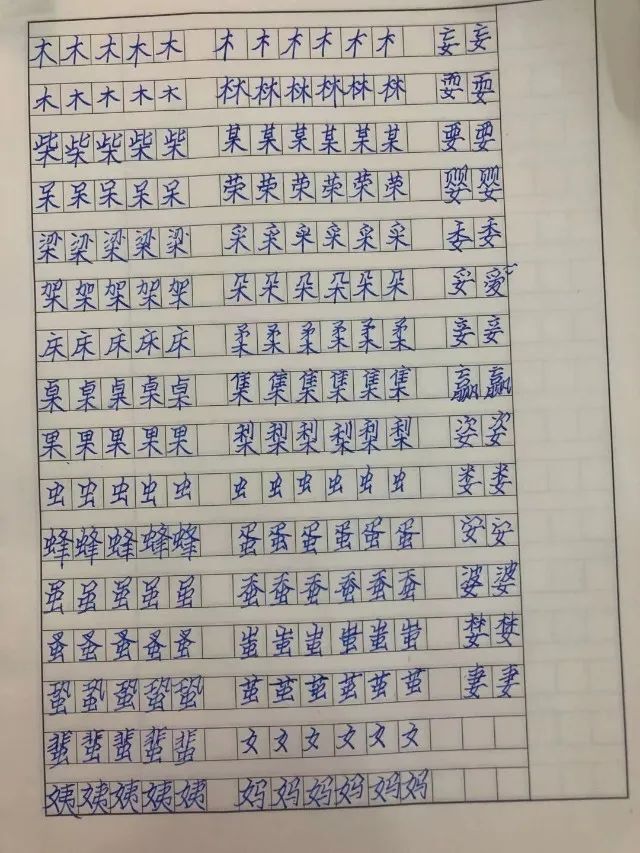 木木木木木 木木木木木木 妄妄
木木木木木 林林林林林林 耍耍
柴柴柴柴柴 某某某某某某 要要
呆呆呆呆呆 荣荣荣荣荣荣 婴婴
梁梁梁梁梁 采采采采采采 委委
架架架架架 朵朵朵朵朵朵 妥
床床床床床 柔柔柔柔柔柔 妾妾
桌桌桌桌桌 集集集集集集 嬴嬴
果果果果果 梨梨梨梨梨梨 姿姿
虫虫虫虫虫 虫虫虫虫虫虫 娄娄
蜂蜂蜂蜂蜂 蛋蛋蛋蛋蛋蛋 安安
虽虽虽虽虽 蚕蚕蚕蚕蚕蚕 婆婆
蚤蚤蚤蚤蚤 蚩蚩蚩蚩蚩蚩 婪婪
蛰蛰蛰蛰蛰 茧茧茧茧茧茧 妻妻
蜚蜚蜚蜚蜚 女女女女女女
姨姨姨姨姨 妈妈妈妈妈妈